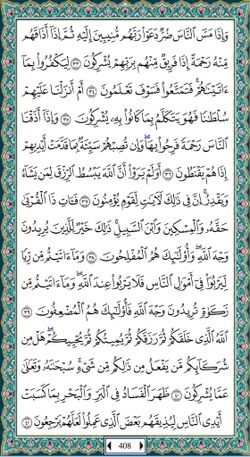 وَإِذَا مَسَّ النَّاسَ ضُرٌّ دَعَوْا رَبَّهُم مُّنِيبِينَ إِلَيْهِ ثُمَّ إِذَا أَذَاقَهُم
مِّنْهُ رَحْمَةً إِذَا فَرِيقٌ مِّنْهُم بِرَبِّهِمْ يُشْرِكُونَ ٣٣ لِيَكْفُرُوا بِمَا
ءَاتَيْنَاهُمْ ۚ فَتَمَتَّعُوا فَسَوْفَ تَعْلَمُونَ ٣٤ أَمْ أَنزَلْنَا عَلَيْهِمْ
سُلْطَانًا فَهُوَ يَتَكَلَّمُ بِمَا كَانُوا بِهِ يُشْرِكُونَ ٣٥ وَإِذَا أَذَقْنَا
النَّاسَ رَحْمَةً فَرِحُوا بِهَا ۖ وَإِن تُصِبْهُمْ سَيِّئَةٌ بِمَا قَدَّمَتْ أَيْدِيهِمْ
إِذَا هُمْ يَقْنَطُونَ ٣٦ أَوَلَمْ يَرَوْا أَنَّ اللَّهَ يَبْسُطُ الرِّزْقَ لِمَن يَشَاءُ
وَيَقْدِرُ ۚ إِنَّ فِي ذَٰلِكَ لَآيَاتٍ لِّقَوْمٍ يُؤْمِنُونَ ٣٧ فَـَٔاتِ ذَا الْقُرْبَىٰ
حَقَّهُ وَالْمِسْكِينَ وَابْنَ السَّبِيلِ ۚ ذَٰلِكَ خَيْرٌ لِّلَّذِينَ يُرِيدُونَ
وَجْهَ اللَّهِ ۖ وَأُولَٰئِكَ هُمُ الْمُفْلِحُونَ ٣٨ وَمَا ءَاتَيْتُم مِّن رِّبًا
لِّيَرْبُوَا فِي أَمْوَالِ النَّاسِ فَلَا يَرْبُوا عِندَ اللَّهِ ۖ وَمَا ءَاتَيْتُم مِّن
زَكَوٰةٍ تُرِيدُونَ وَجْهَ اللَّهِ فَأُولَٰئِكَ هُمُ الْمُضْعِفُونَ ٣٩
اللَّهُ الَّذِي خَلَقَكُمْ ثُمَّ رَزَقَكُمْ ثُمَّ يُمِيتُكُمْ ثُمَّ يُحْيِيكُمْ ۖ هَلْ مِن
شُرَكَائِكُم مَّن يَفْعَلُ مِن ذَٰلِكُم مِّن شَيْءٍ ۚ سُبْحَانَهُ وَتَعَالَىٰ
عَمَّا يُشْرِكُونَ ٤٠ ظَهَرَ الْفَسَادُ فِي الْبَرِّ وَالْبَحْرِ بِمَا كَسَبَتْ
أَيْدِي النَّاسِ لِيُذِيقَهُم بَعْضَ الَّذِي عَمِلُوا لَعَلَّهُمْ يَرْجِعُونَ ٤١
408